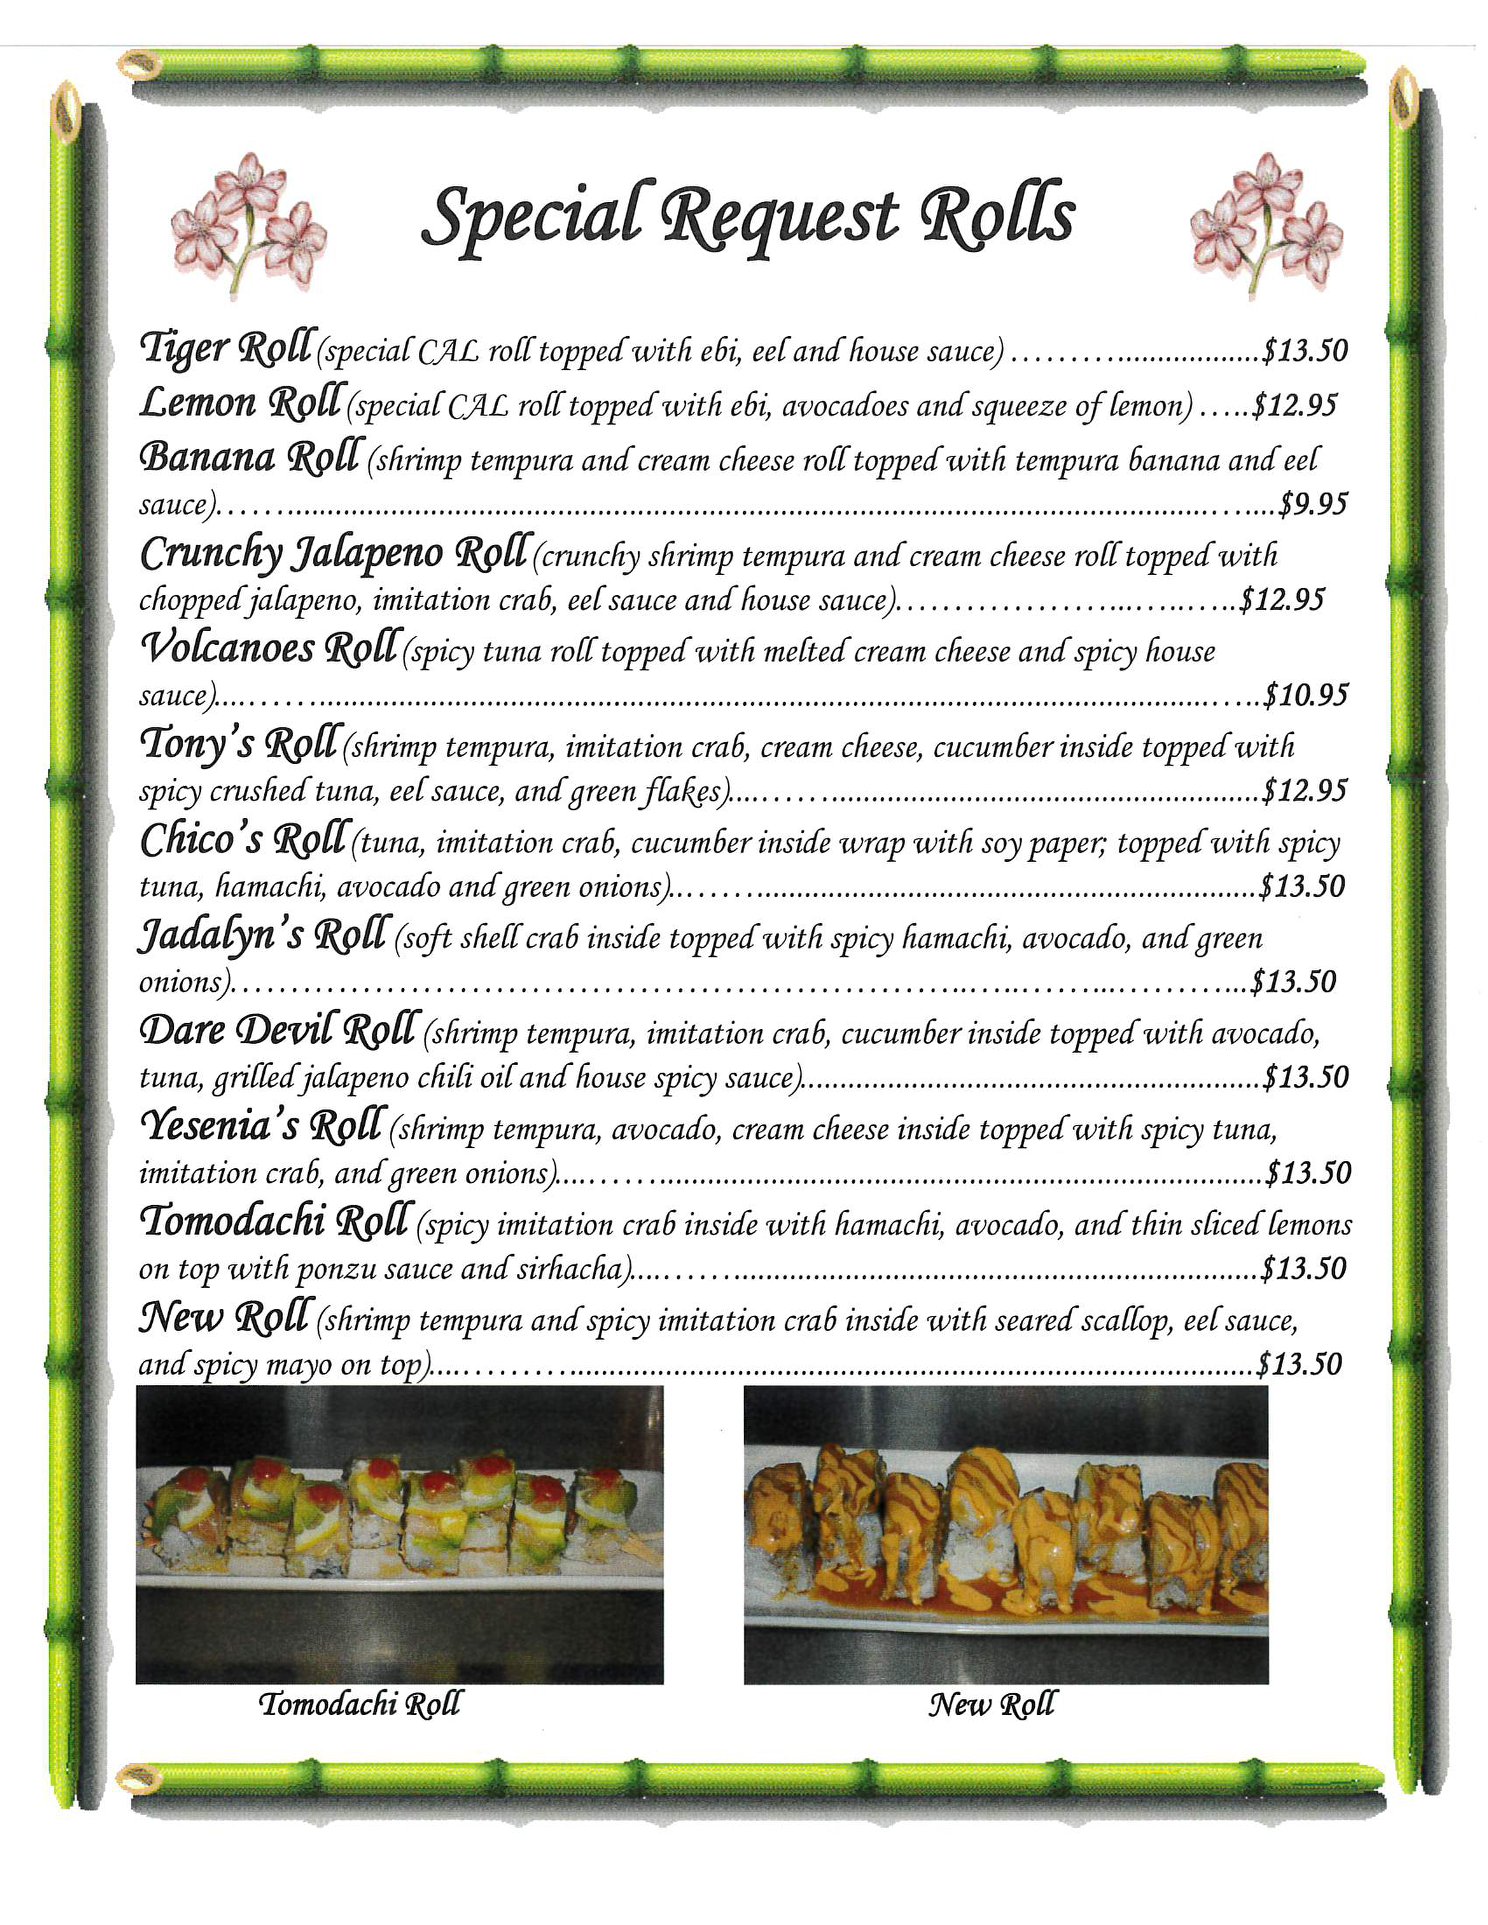 Special Request Rolls
Tiger Roll (special CAL roll topped with ebi, eel and house sauce) ……………………$13.50
Lemon Roll (special CAL roll topped with ebi, avocadoes and squeeze of lemon) …..$12.95
Banana Roll (shrimp tempura and cream cheese roll topped with tempura banana and eel
sauce)……………………………………………………………………$9.95
Crunchy Jalapeno Roll (crunchy shrimp tempura and cream cheese roll topped with
chopped jalapeno, imitation crab, eel sauce and house sauce)…………………………$12.95
Volcanoes Roll (spicy tuna roll topped with melted cream cheese and spicy house
sauce)……………………………………………………………………$10.95
Tony's Roll (shrimp tempura, imitation crab, cream cheese, cucumber inside topped with
spicy crushed tuna, eel sauce, and green flakes)……………………………………$12.95
Chico's Roll (tuna, imitation crab, cucumber inside wrap with soy paper; topped with spicy
tuna, hamachi, avocado and green onions)……………………………………$13.50
Jadalyn's Roll (soft shell crab inside topped with spicy hamachi, avocado, and green
onions)……………………………………………………………………$13.50
Dare Devil Roll (shrimp tempura, imitation crab, cucumber inside topped with avocado,
tuna, grilled jalapeno chili oil and house spicy sauce)……………………………$13.50
Yesenia's Roll (shrimp tempura, avocado, cream cheese inside topped with spicy tuna,
imitation crab, and green onions)……………………………………………$13.50
Tomodachi Roll (spicy imitation crab inside with hamachi, avocado, and thin sliced lemons
on top with ponzu sauce and sirhacha)……………………………………$13.50
New Roll (shrimp tempura and spicy imitation crab inside with seared scallop, eel sauce,
and spicy mayo on top)……………………………………………………$13.50
Tomodachi Roll
New Roll